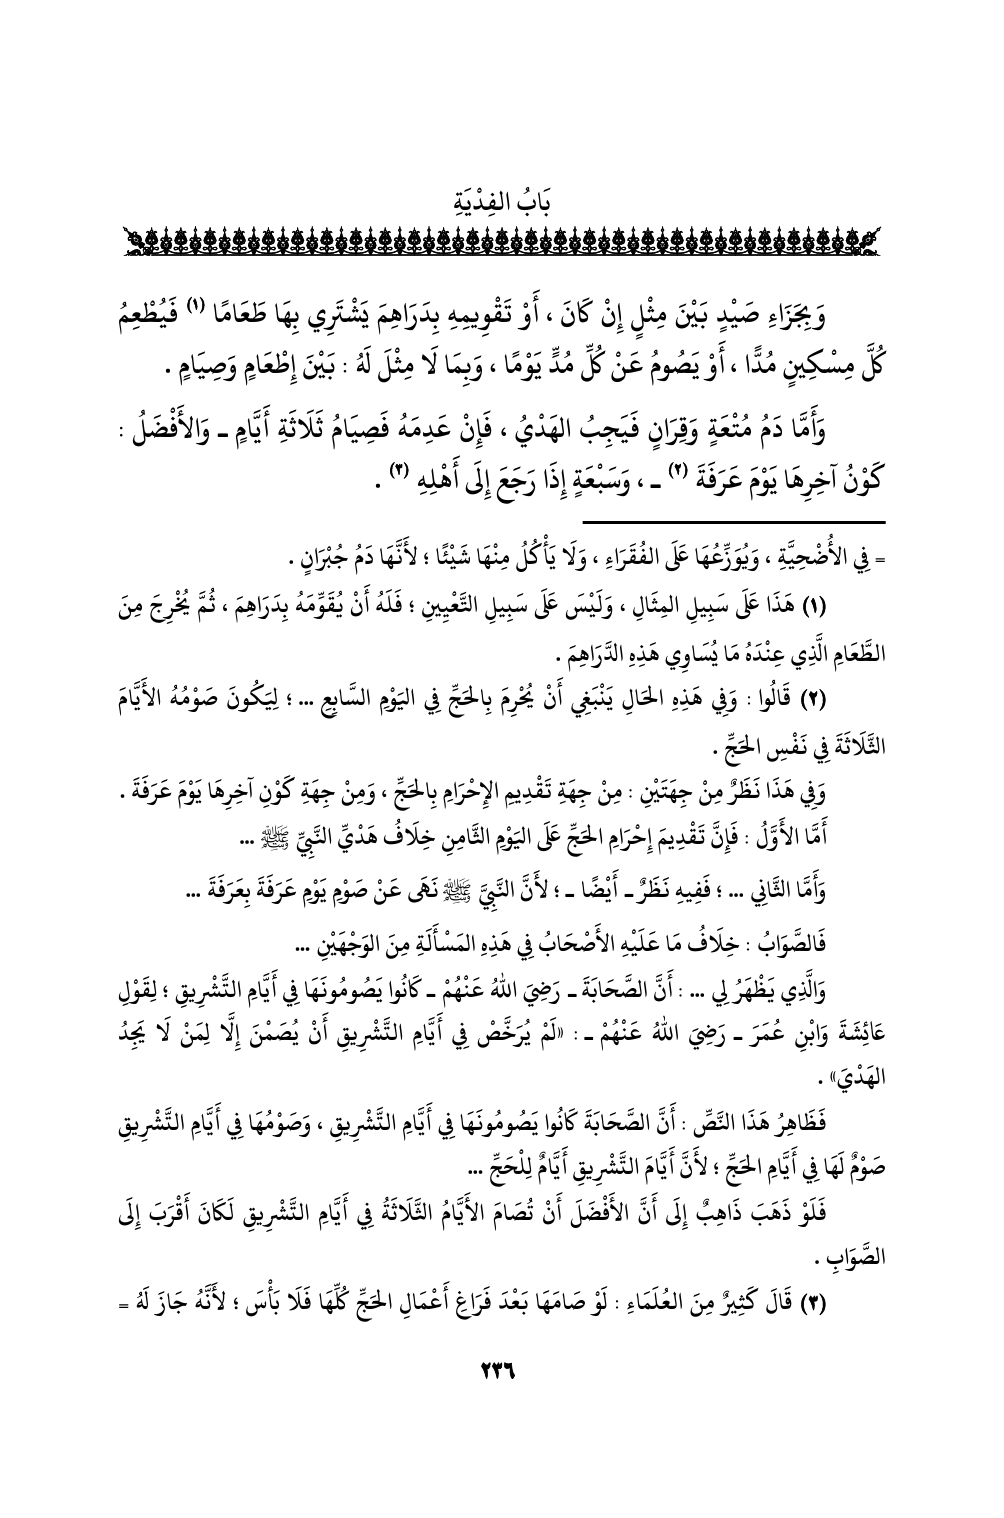 بَابُ الفِدْيَةِ
وَبِجَزَاءِ صَيْدٍ بَيْنَ مِثْلٍ إِنْ كَانَ ، أَوْ تَقْوِيمِهِ بِدَرَاهِمَ يَشْتَرِي بِهَا طَعَامًا (١) فَيُطْعِمُ
كُلَّ مِسْكِينٍ مُدًّا ، أَوْ يَصُومُ عَنْ كُلِّ مُدٍّ يَوْمًا ، وَبِمَا لَا مِثْلَ لَهُ : بَيْنَ إِطْعَامٍ وَصِيَامٍ .
وَأَمَّا دَمُ مُتْعَةٍ وَقِرَانٍ فَيَجِبُ الهَدْيُ ، فَإِنْ عَدِمَهُ فَصِيَامُ ثَلَاثَةِ أَيَّامٍ ـ وَالأَفْضَلُ :
كَوْنُ آخِرِهَا يَوْمَ عَرَفَةَ (٢) ـ ، وَسَبْعَةٍ إِذَا رَجَعَ إِلَى أَهْلِهِ (٣) .
= فِي الأُضْحِيَّةِ ، وَيُوَزِّعُهَا عَلَى الفُقَرَاءِ ، وَلَا يَأْكُلُ مِنْهَا شَيْئًا ؛ لأَنَّهَا دَمُ جُبْرَانٍ .
(١) هَذَا عَلَى سَبِيلِ المِثَالِ ، وَلَيْسَ عَلَى سَبِيلِ التَّعْيِينِ ؛ فَلَهُ أَنْ يُقَوِّمَهُ بِدَرَاهِمَ ، ثُمَّ يُخْرِجَ مِنَ
الطَّعَامِ الَّذِي عِنْدَهُ مَا يُسَاوِي هَذِهِ الدَّرَاهِمَ .
(٢) قَالُوا : وَفِي هَذِهِ الحَالِ يَنْبَغِي أَنْ يُحْرِمَ بِالحَجِّ فِي اليَوْمِ السَّابِعِ ... ؛ لِيَكُونَ صَوْمُهُ الأَيَّامَ
الثَّلَاثَةَ فِي نَفْسِ الحَجِّ .
وَفِي هَذَا نَظَرٌ مِنْ جِهَتَيْنِ : مِنْ جِهَةِ تَقْدِيمِ الإِحْرَامِ بِالحَجِّ ، وَمِنْ جِهَةِ كَوْنِ آخِرِهَا يَوْمَ عَرَفَةَ .
أَمَّا الأَوَّلُ : فَإِنَّ تَقْدِيمَ إِحْرَامِ الحَجِّ عَلَى اليَوْمِ الثَّامِنِ خِلَافُ هَدْيِّ النَّبِيِّ ﷺ ...
وَأَمَّا الثَّانِي ... ؛ فَفِيهِ نَظَرٌ ـ أَيْضًا ـ ؛ لأَنَّ النَّبِيَّ ﷺ نَهَى عَنْ صَوْمِ يَوْمِ عَرَفَةَ بِعَرَفَةَ ...
فَالصَّوَابُ : خِلَافُ مَا عَلَيْهِ الأَصْحَابُ فِي هَذِهِ المَسْأَلَةِ مِنَ الوَجْهَيْنِ ...
وَالَّذِي يَظْهَرُ لِي ... : أَنَّ الصَّحَابَةَ ـ رَضِيَ اللهُ عَنْهُمْ ـ كَانُوا يَصُومُونَهَا فِي أَيَّامِ التَّشْرِيقِ ؛ لِقَوْلِ
عَائِشَةَ وَابْنِ عُمَرَ ـ رَضِيَ اللهُ عَنْهُمْ ـ : «لَمْ يُرَخَّصْ فِي أَيَّامِ التَّشْرِيقِ أَنْ يُصَمْنَ إِلَّا لِمَنْ لَا يَجِدُ
الهَدْيَ» .
فَظَاهِرُ هَذَا النَّصِّ : أَنَّ الصَّحَابَةَ كَانُوا يَصُومُونَهَا فِي أَيَّامِ التَّشْرِيقِ ، وَصَوْمُهَا فِي أَيَّامِ التَّشْرِيقِ
صَوْمٌ لَهَا فِي أَيَّامِ الحَجِّ ؛ لأَنَّ أَيَّامَ التَّشْرِيقِ أَيَّامٌ لِلْحَجِّ ...
فَلَوْ ذَهَبَ ذَاهِبٌ إِلَى أَنَّ الأَفْضَلَ أَنْ تُصَامَ الأَيَّامُ الثَّلَاثَةُ فِي أَيَّامِ التَّشْرِيقِ لَكَانَ أَقْرَبَ إِلَى
الصَّوَابِ .
(٣) قَالَ كَثِيرٌ مِنَ العُلَمَاءِ : لَوْ صَامَهَا بَعْدَ فَرَاغِ أَعْمَالِ الحَجِّ كُلِّهَا فَلَا بَأْسَ ؛ لأَنَّهُ جَازَ لَهُ =
٢٣٦